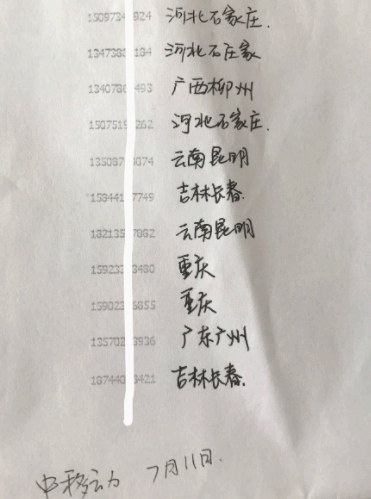 1509734 924 河北石家庄.
1347388 184 河北石庄家
1340786 493 广西柳州
1507519 262 河北石家庄.
135087 8074 云南昆明
158441 7749 吉林长春.
182135 7882 云南昆明
159233 8480 重庆
159023 6855 重庆
135702 8936 广东广州
187440 8421 吉林长春.
中移 7月11日.